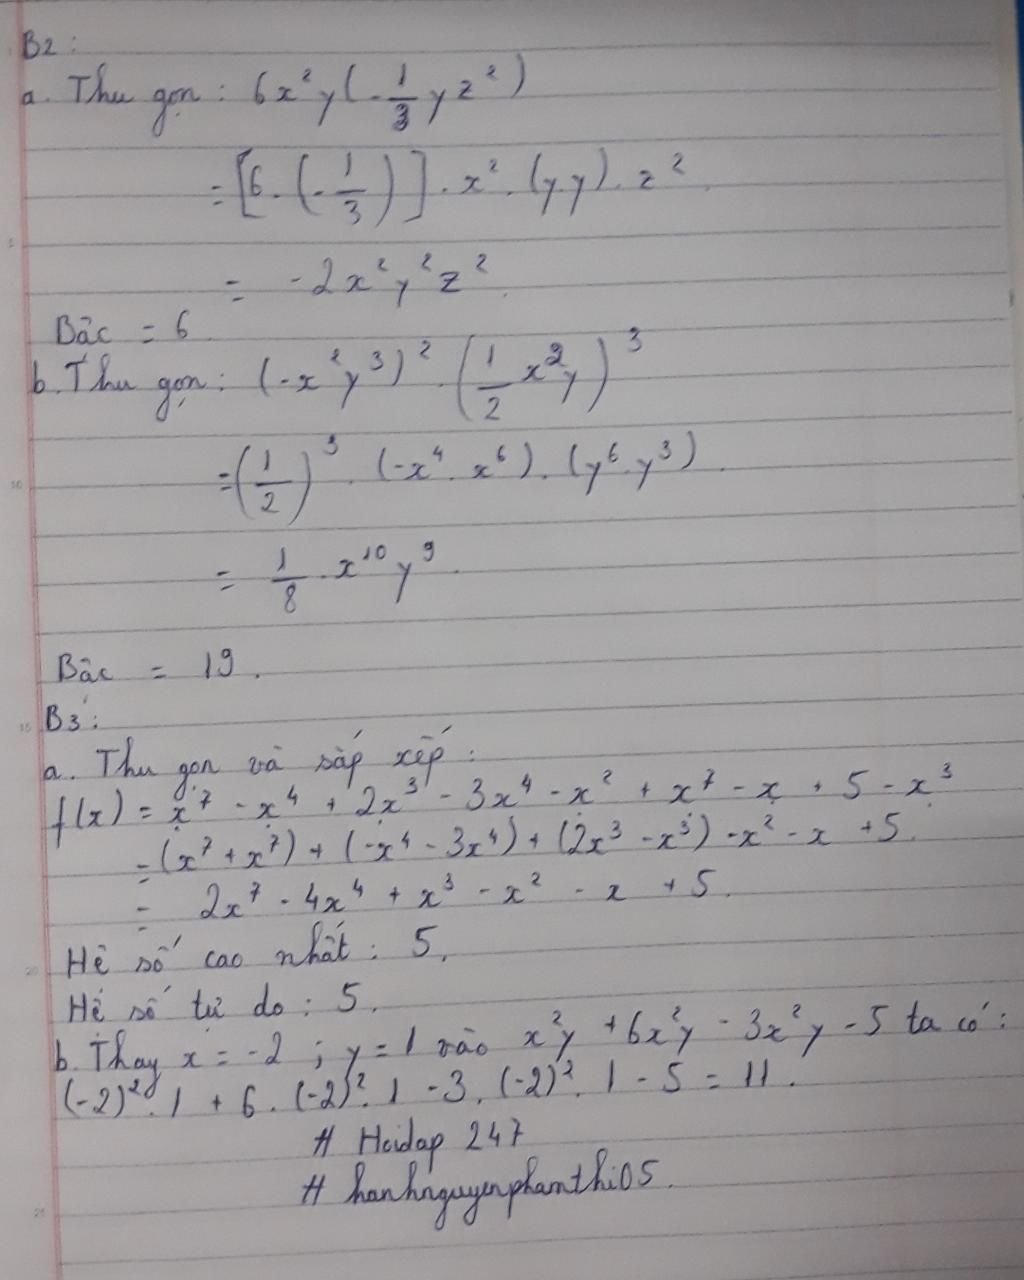 B2:
a. Thu gọn: 6x²y(-1/3 yz²)
= [6.(-1/3)].x².(y.y).z²
= -2x²y²z².
Bậc = 6
b. Thu gọn: (-x²y³)².(1/2 x²y)³
= (1/2)³.(-x⁴.x⁶).(y⁶.y³).
= 1/8.x¹⁰y⁹.
Bậc = 19.
B3:
a. Thu gọn và sắp xếp:
f(x) = x⁷ - x⁴ + 2x³ - 3x⁴ - x² + x⁷ - x + 5 - x³
= (x⁷ + x⁷) + (-x⁴ - 3x⁴) + (2x³ - x³) - x² - x + 5.
= 2x⁷ - 4x⁴ + x³ - x² - x + 5.
Hệ số cao nhất: 5.
Hệ số tự do: 5.
b. Thay x = -2 ; y = 1 vào x²y + 6x²y - 3x²y - 5 ta có:
(-2)².1 + 6.(-2)².1 - 3.(-2)².1 - 5 = 11.
# Hoidap 247
# hanhnguyenphamthi05.